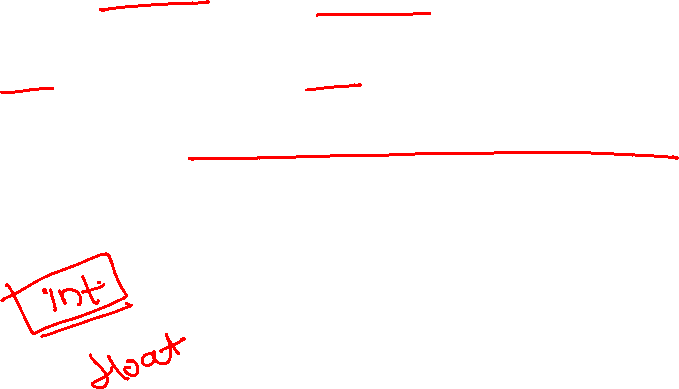 int
float